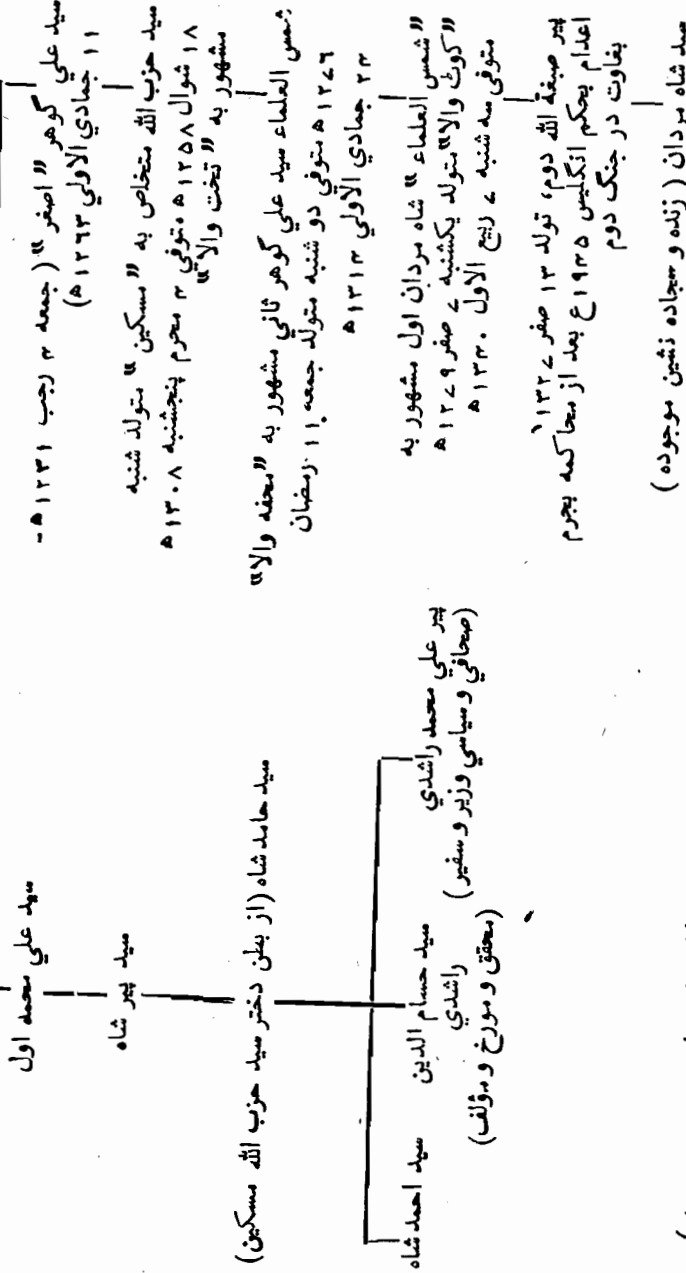 سيد علي گوهر ”اصغر“ (جمعه ۳ رجب ۱۲۳۱ ه -
۱۱ جمادي الاولي ۱۲۶۳ ه)
سيد حزب الله متخلص به ”مسكين“ متولد شنبه
۱۸ شوال ۱۲۵۸ ه متوفي ۳ محرم پنجشنبه ۱۳۰۸ ه
مشهور به ”تخت والا“
شمس العلماء سيد علي گوهر ثاني مشهور به ”محفه والا“
۱۲۷۹ ه متوفي دو شنبه متولد جمعه ۱۱ رمضان
۲۳ جمادي الاولي ۱۳۱۳ ه
”شمس العلماء“ شاه مردان اول مشهور به
”كوٹ والا“ متولد يكشنبه ۷ صفر ۱۲۷۹ ه
متوفي سه شنبه ۷ ربيع الاول ۱۳۴۰ ه
پير صبغة الله دوم، تولد ۱۳ صفر ۱۳۲۷
اعدام بحكم انگليس ۱۹۴۵ع بعد از محاكمه بجرم
بغاوت در جنگ دوم
سيد شاه مردان (زنده و سجاده نشين موجوده)
سيد علي محمد اول
سيد پير شاه
سيد حامد شاه (از بطن دختر سيد حزب الله مسكين)
پير علي محمد راشدي
(صحافي و سياسي وزير و سفير)
سيد حسام الدين
راشدي
(محقق و مورخ و مؤلف)
سيد احمد شاه